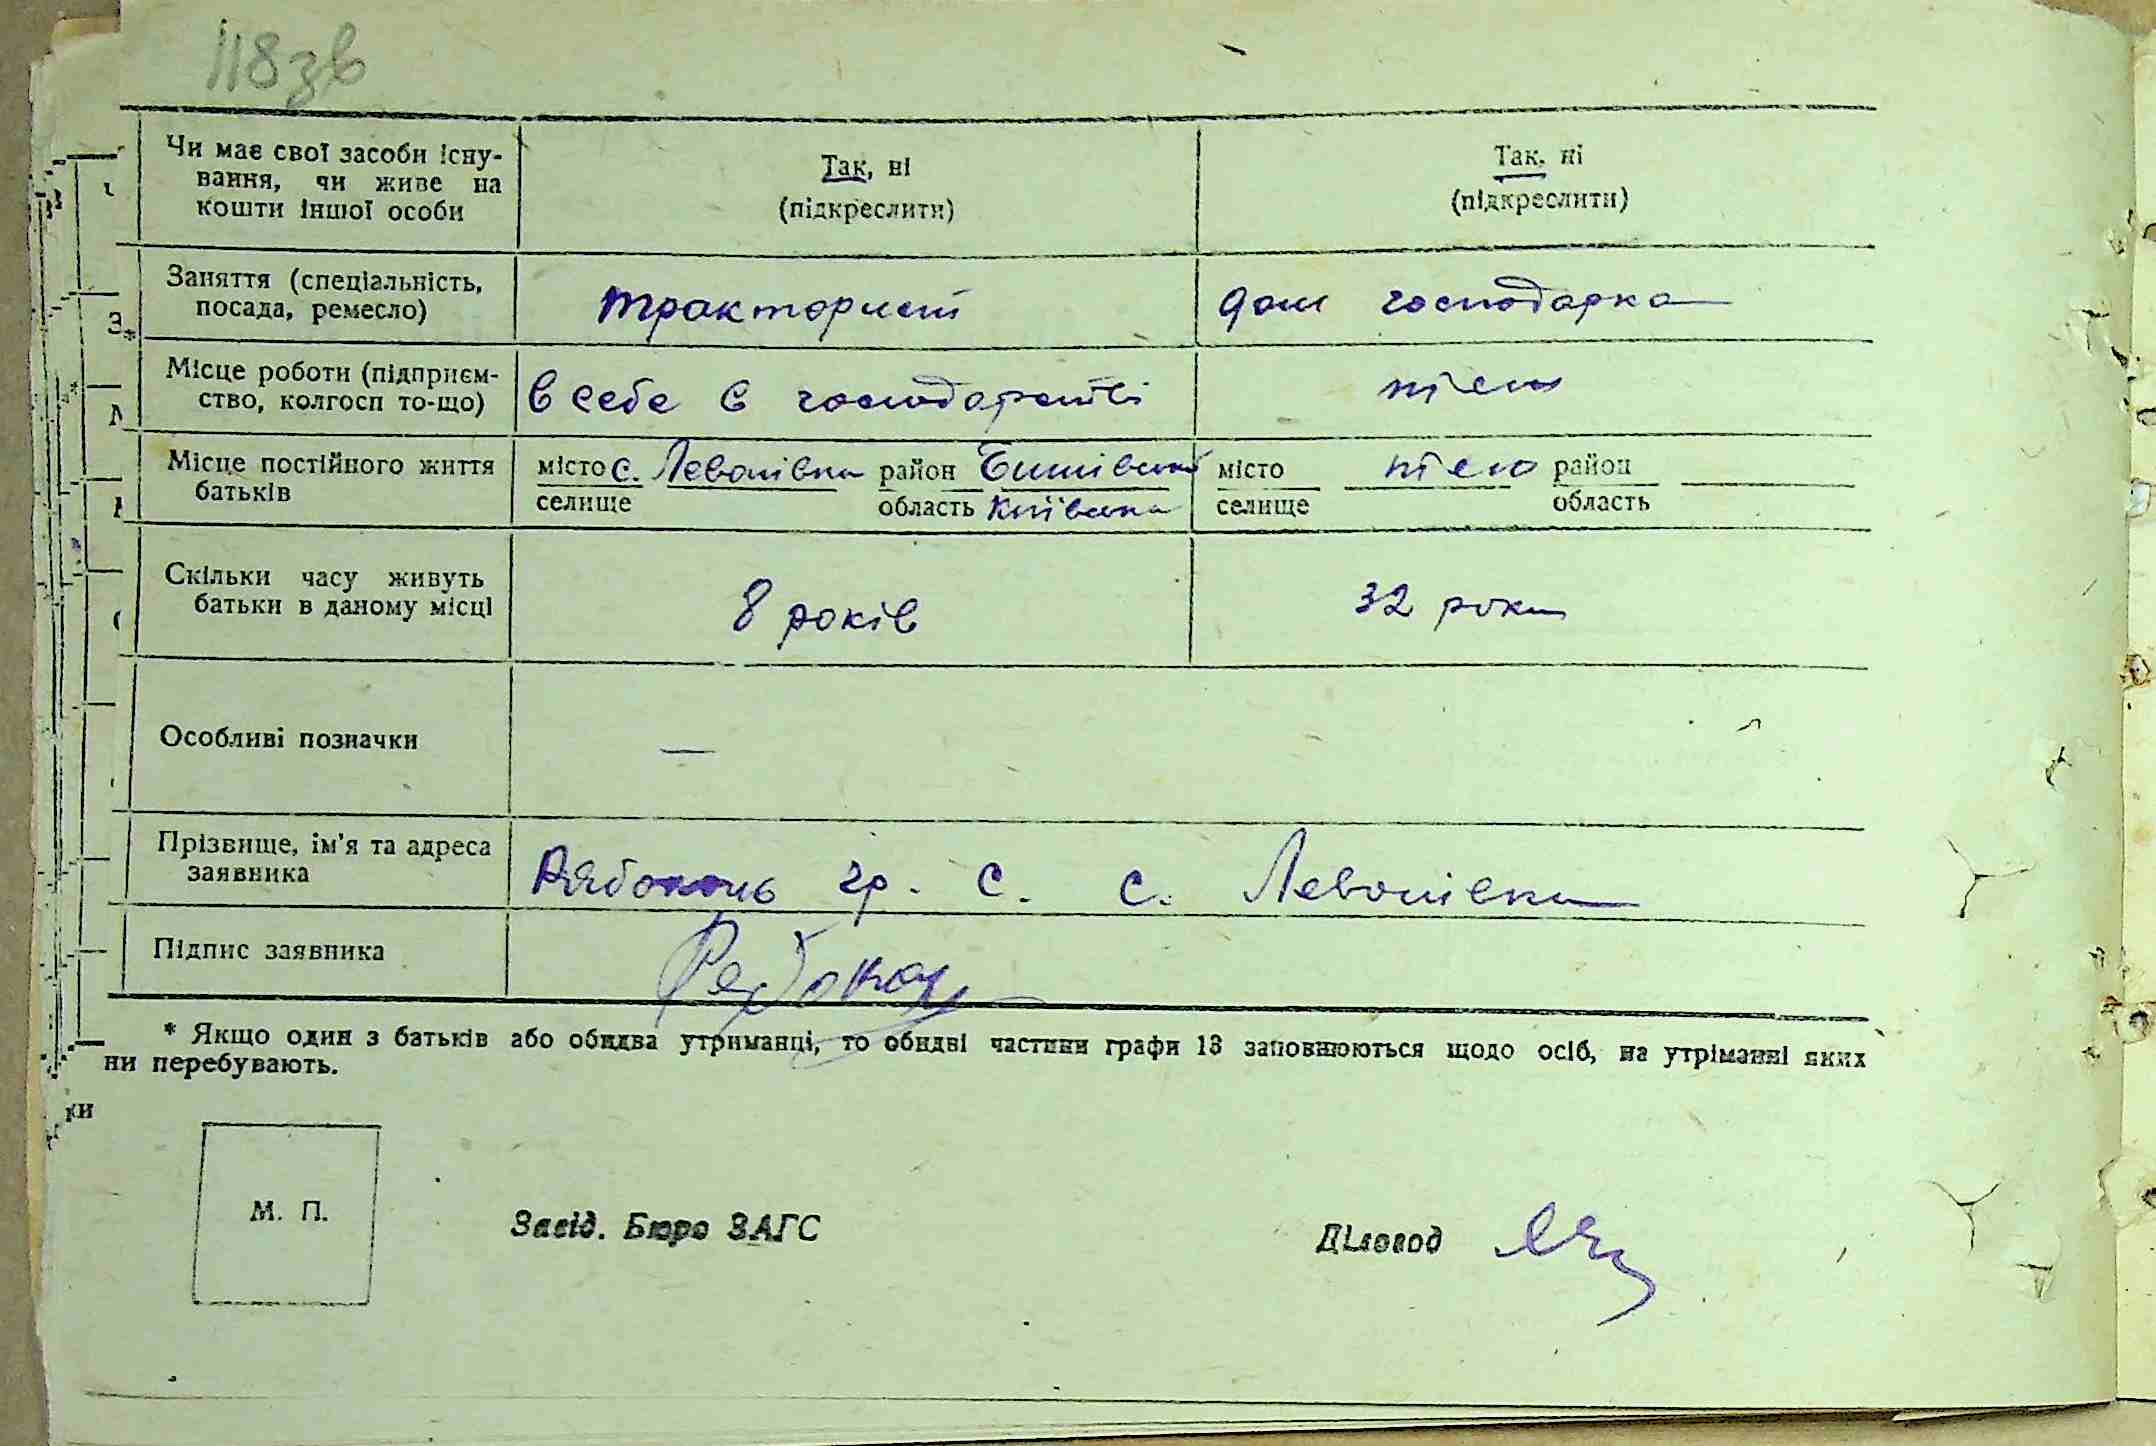 118зв
Чи має свої засоби існу-
вання, чи живе на
кошти іншої особи
Так, ні
(підкреслити)
Так, ні
(підкреслити)
Заняття (спеціальність,
посада, ремесло)
тракторист
дом господарка
Місце роботи (підприєм-
ство, колгосп то-що)
в себе в господарстві
тією
Місце постійного життя
батьків
місто с. Левонівка район Бишівський
селище область Київська
місто тією район
селище область
Скільки часу живуть
батьки в даному місці
8 років
32 роки
Особливі позначки
—
Прізвище, ім'я та адреса
заявника
Рябоконь гр. С. с. Левонівка
Підпис заявника
* Якщо один з батьків або обидва утриманці, то обидві частини графи 13 заповнюються щодо осіб, на утріманні яких
ни перебувають.
ки
М. П.
Завід. Бюро ЗАГС
Діловод